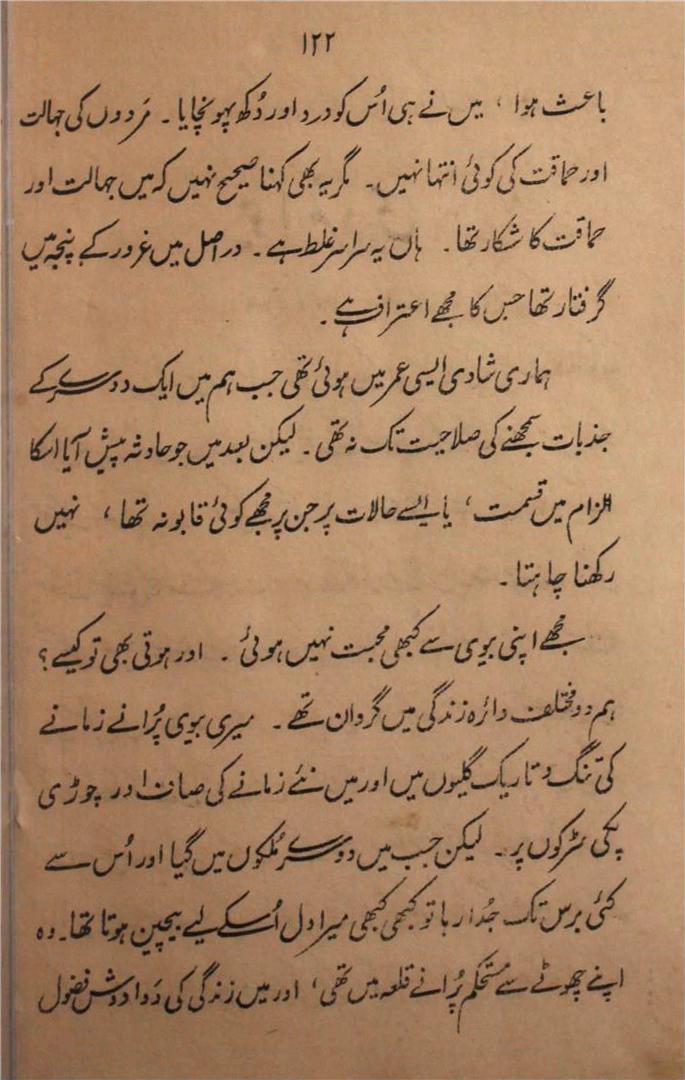 ۱۲۲
باعث ہوا، میں نے ہی اُس کو درد اور دُکھ پہونچایا۔ مَردوں کی جہالت
اور حماقت کی کوئی انتہا نہیں۔ مگر یہ بھی کہنا صحیح نہیں کہ میں جہالت اور
حماقت کا شکار تھا۔ ہاں یہ سراسر غلط ہے۔ دراصل میں غرور کے پنجہ میں
گرفتار تھا جس کا مجھے اعتراف ہے۔
ہماری شادی ایسی عمر میں ہوئی تھی جب ہم میں ایک دوسرے کے
جذبات سمجھنے کی صلاحیت تک نہ تھی۔ لیکن بعد میں جو حادثہ پیش آیا اسکا
الزام میں قسمت، یا ایسے حالات پر جن پر مجھے کوئی قابو نہ تھا، نہیں
رکھنا چاہتا۔
مجھے اپنی بیوی سے کبھی محبت نہیں ہوئی۔ اور ہوتی بھی تو کیسے؟
ہم دو مختلف دائرہ زندگی میں گردان تھے۔ میری بیوی پُرانے زمانے
کی تنگ و تاریک گلیوں میں اور میں نئے زمانے کی صاف اور چوڑی
پکی سڑکوں پر۔ لیکن جب میں دوسرے مُلکوں میں گیا اور اُس سے
کئی برس تک جُدا رہا تو کبھی کبھی میرا دل اُسکے لیے بیچین ہوتا تھا۔ وہ
اپنے چھوٹے سے مستحکم پُرانے قلعہ میں تھی، اور میں زندگی کی دَوا دوش فضول